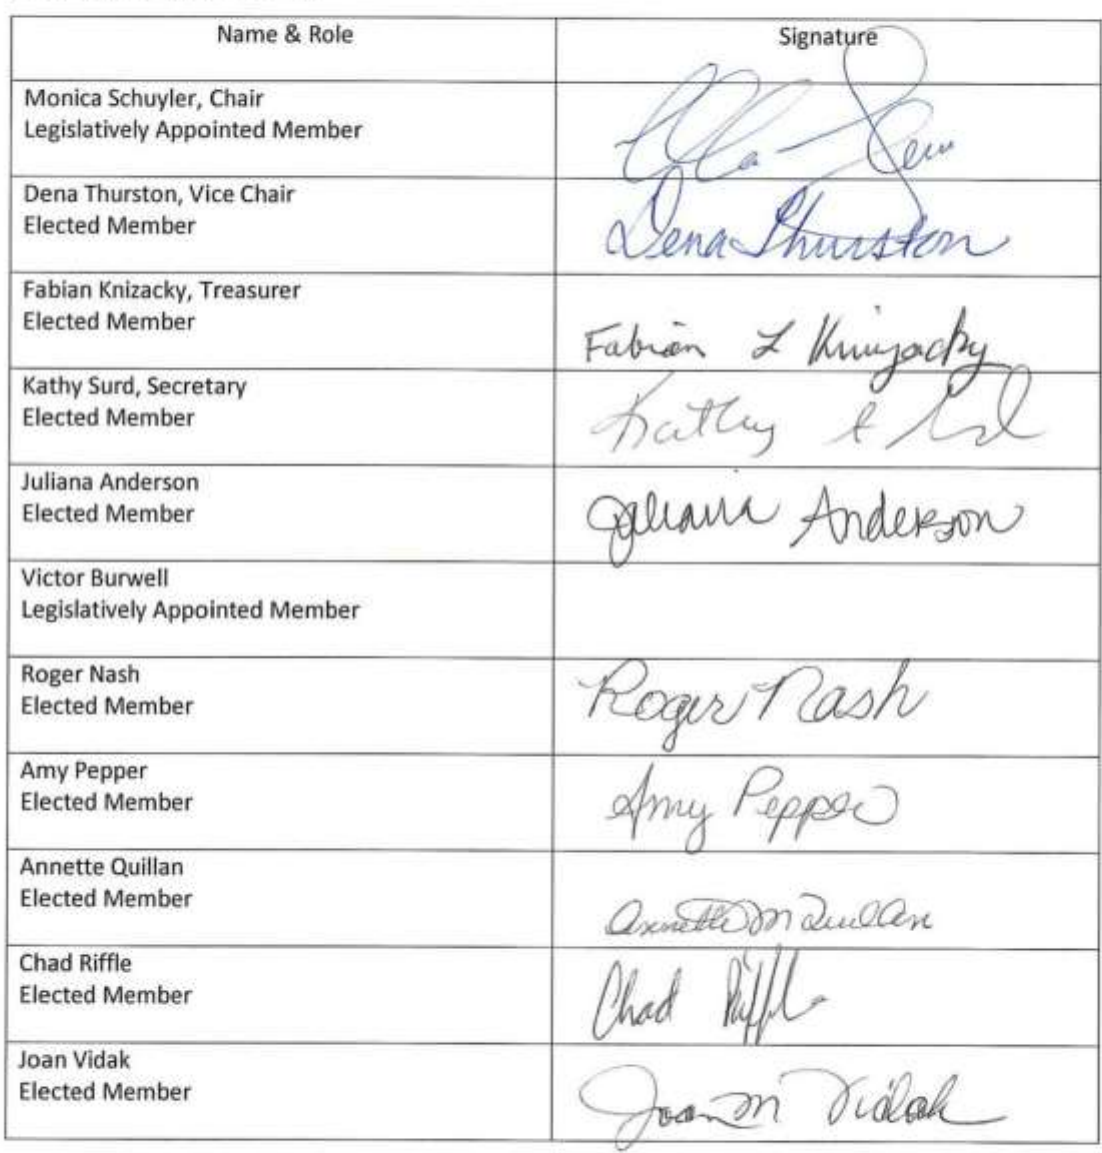 Name & Role
Signature
Monica Schuyler, Chair
Legislatively Appointed Member
Dena Thurston, Vice Chair
Elected Member
Dena Thurston
Fabian Knizacky, Treasurer
Elected Member
Fabian L Knizacky
Kathy Surd, Secretary
Elected Member
Kathy
Juliana Anderson
Elected Member
Juliana Anderson
Victor Burwell
Legislatively Appointed Member
Roger Nash
Elected Member
Roger Nash
Amy Pepper
Elected Member
Amy Pepper
Annette Quillan
Elected Member
Annette M Quillan
Chad Riffle
Elected Member
Chad Riffle
Joan Vidak
Elected Member
Joan M Vidak